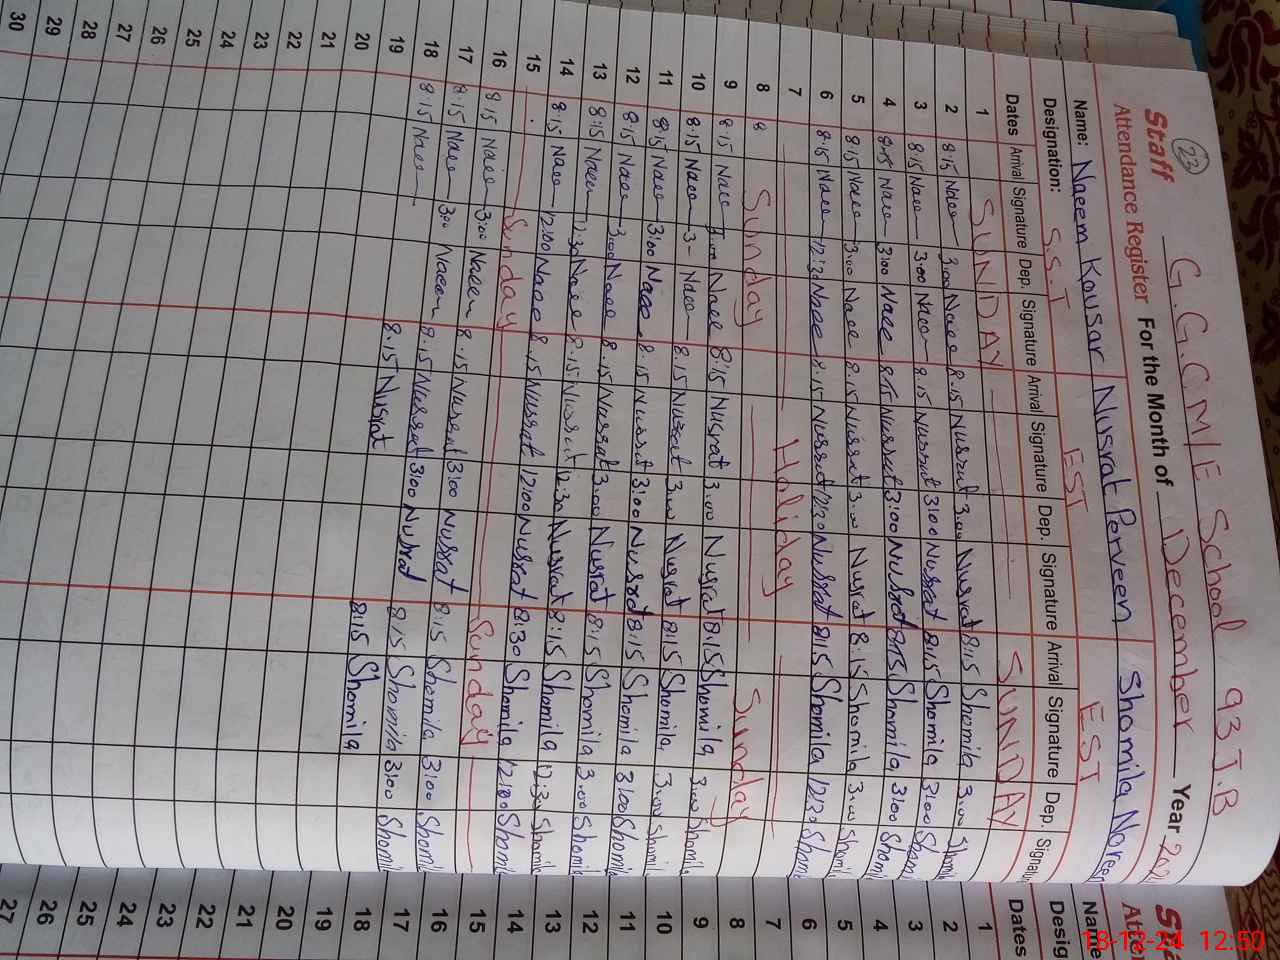 23
G.G.C.M/E School 93 J.B
Staff
Attendance Register For the Month of December Year 202
Name: Naeem Kousar Nusrat Perveen Shomila Noreen
Designation: S.S.T EST EST
Dates Arrival Signature Dep. Signature Arrival Signature Dep. Signature Arrival Signature Dep. Signatur
1 SUNDAY SUNDAY
2 8:15 Naee 3:00 Naee 8.15 Nusrat 3.00 Nusrat 8:15 Shomila 3.00 Shomila
3 8:15 Naee 3:00 Naee 8.15 Nusrat 3:00 Nusrat 8:15 Shomila 3:00 Shomi
4 8:15 Naee 3:00 Naee 8:15 Nusrat 3:00 Nusrat 8:15 Shomila 3:00 Shomi
5 8:15 Naee 3:00 Naee 8.15 Nusrat 3.00 Nusrat 8:15 Shomila 3.00 Shomil
6 8:15 Naee 12:30 Naee 8.15 Nusrat 12:30 Nusrat 8:15 Shomila 12:30 Shomi
7 Holiday
8 8 Sunday Sunday
9 8:15 Naee 3:00 Naee 8:15 Nusrat 3.00 Nusrat 8:15 Shomila 3:00 Shomil
10 8:15 Naee 3- Naee 8.15 Nusrat 3.00 Nusrat 8:15 Shomila 3.00 Shomil
11 8:15 Naee 3:00 Naee 8.15 Nusrat 3:00 Nusrat 8:15 Shomila 3:00 Shomil
12 8:15 Naee 3:00 Naee 8.15 Nusrat 3.00 Nusrat 8:15 Shomila 3.00 Shomil
13 8:15 Naee 12:30 Naee 8.15 Nusrat 12:30 Nusrat 8:15 Shomila 12:30 Shomil
14 8:15 Naee 12:00 Naee 8.15 Nusrat 12:00 Nusrat 8:30 Shomila 12:00 Shomil
15 Sunday Sunday
16 8:15 Naee 3:00 Naeem 8.15 Nusrat 3:00 Nusrat 8:15 Shomila 3:00 Shomil
17 8:15 Naee 3:00 Naeem 8.15 Nusrat 3:00 Nusrat 8:15 Shomila 3:00 Shomil
18 8:15 Naee 8.15 Nusrat 8:15 Shomila
19
20
21
22
23
24
25
26
27
28
29
30
Sta
Atte
Name
Desig
Dates
1
2
3
4
5
6
7
8
9
10
11
12
13
14
15
16
17
18
19
20
21
22
23
24
25
26
27
18-12-24 12:50